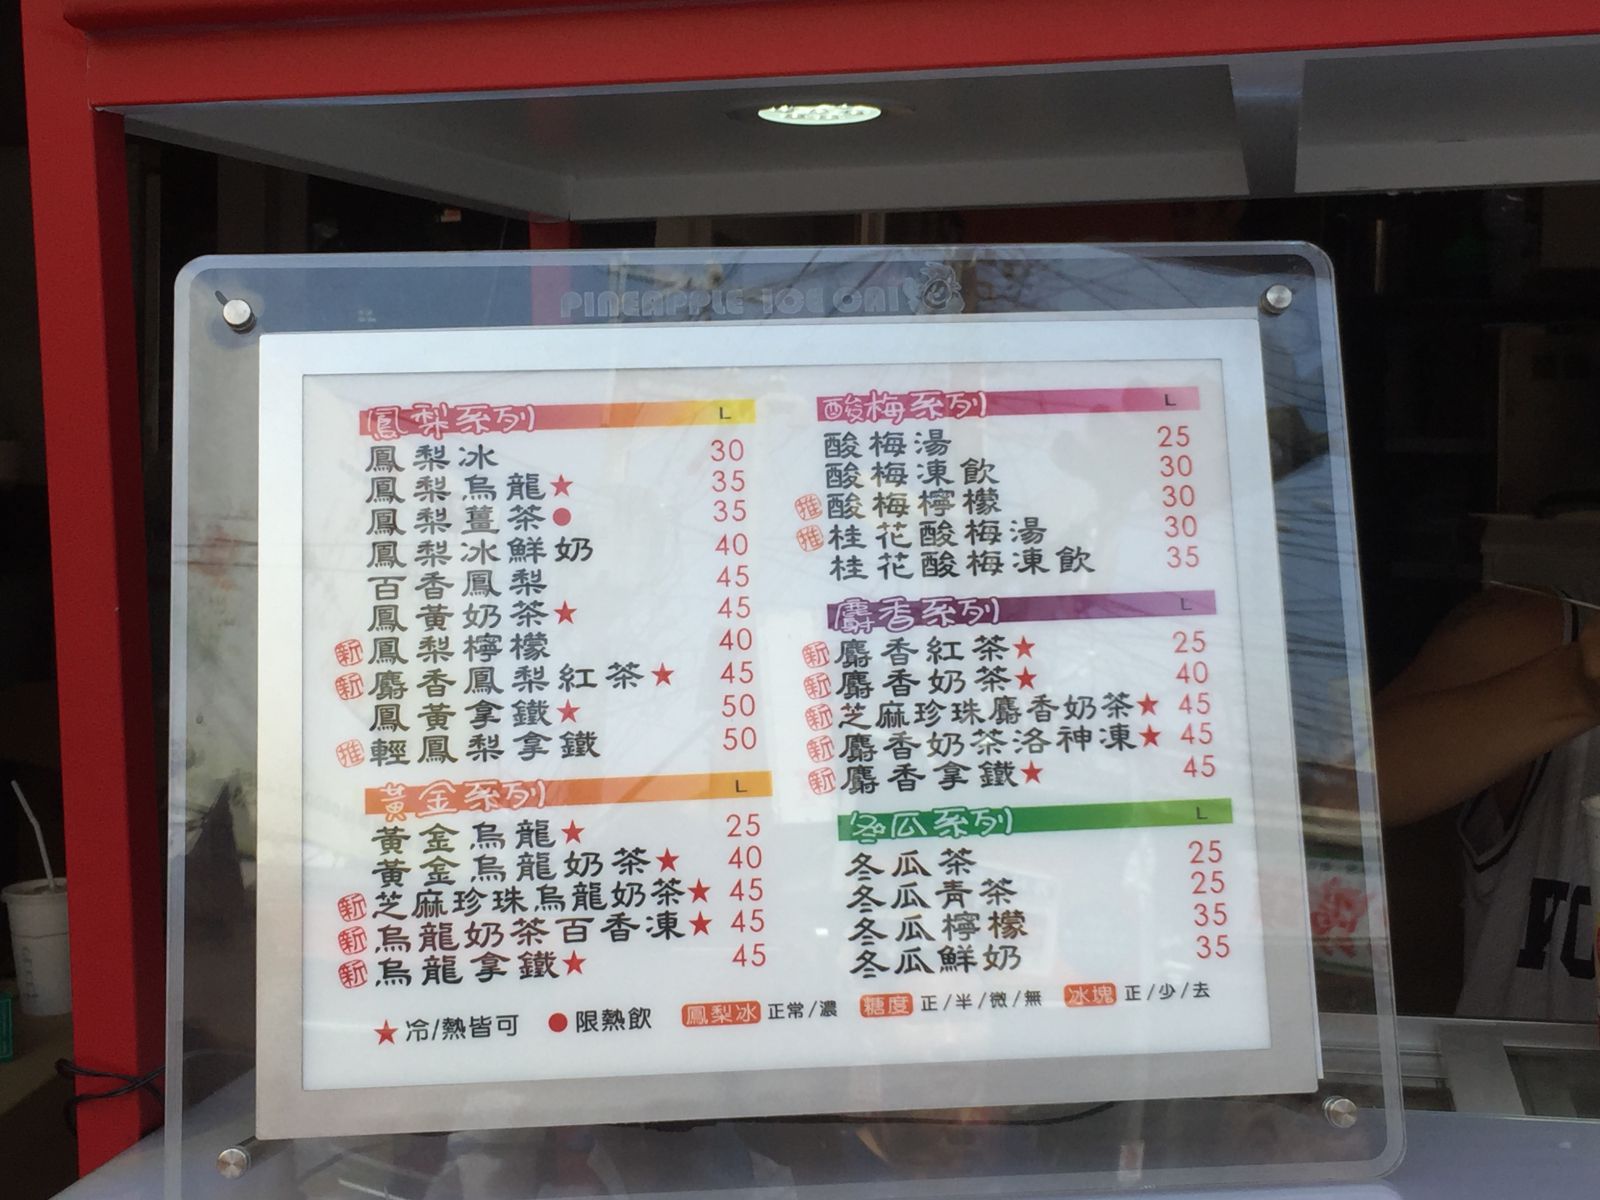 PINEAPPLE ICE
鳳梨系列 L
鳳梨冰 30
鳳梨烏龍★ 35
鳳梨薑茶● 35
鳳梨冰鮮奶 40
百香鳳梨 45
鳳黃奶茶★ 45
新 鳳梨檸檬 40
新 麝香鳳梨紅茶★ 45
鳳黃拿鐵★ 50
推 輕鳳梨拿鐵 50
黃金系列 L
黃金烏龍★ 25
黃金烏龍奶茶★ 40
新 芝麻珍珠烏龍奶茶★ 45
新 烏龍奶茶百香凍★ 45
新 烏龍拿鐵★ 45
酸梅系列 L
酸梅湯 25
酸梅凍飲 30
推 酸梅檸檬 30
推 桂花酸梅湯 30
桂花酸梅凍飲 35
麝香系列 L
新 麝香紅茶★ 25
新 麝香奶茶★ 40
新 芝麻珍珠麝香奶茶★ 45
新 麝香奶茶洛神凍★ 45
新 麝香拿鐵★ 45
冬瓜系列 L
冬瓜茶 25
冬瓜青茶 25
冬瓜檸檬 35
冬瓜鮮奶 35
★冷/熱皆可 ●限熱飲 鳳梨冰 正常/濃 糖度 正/半/微/無 冰塊 正/少/去